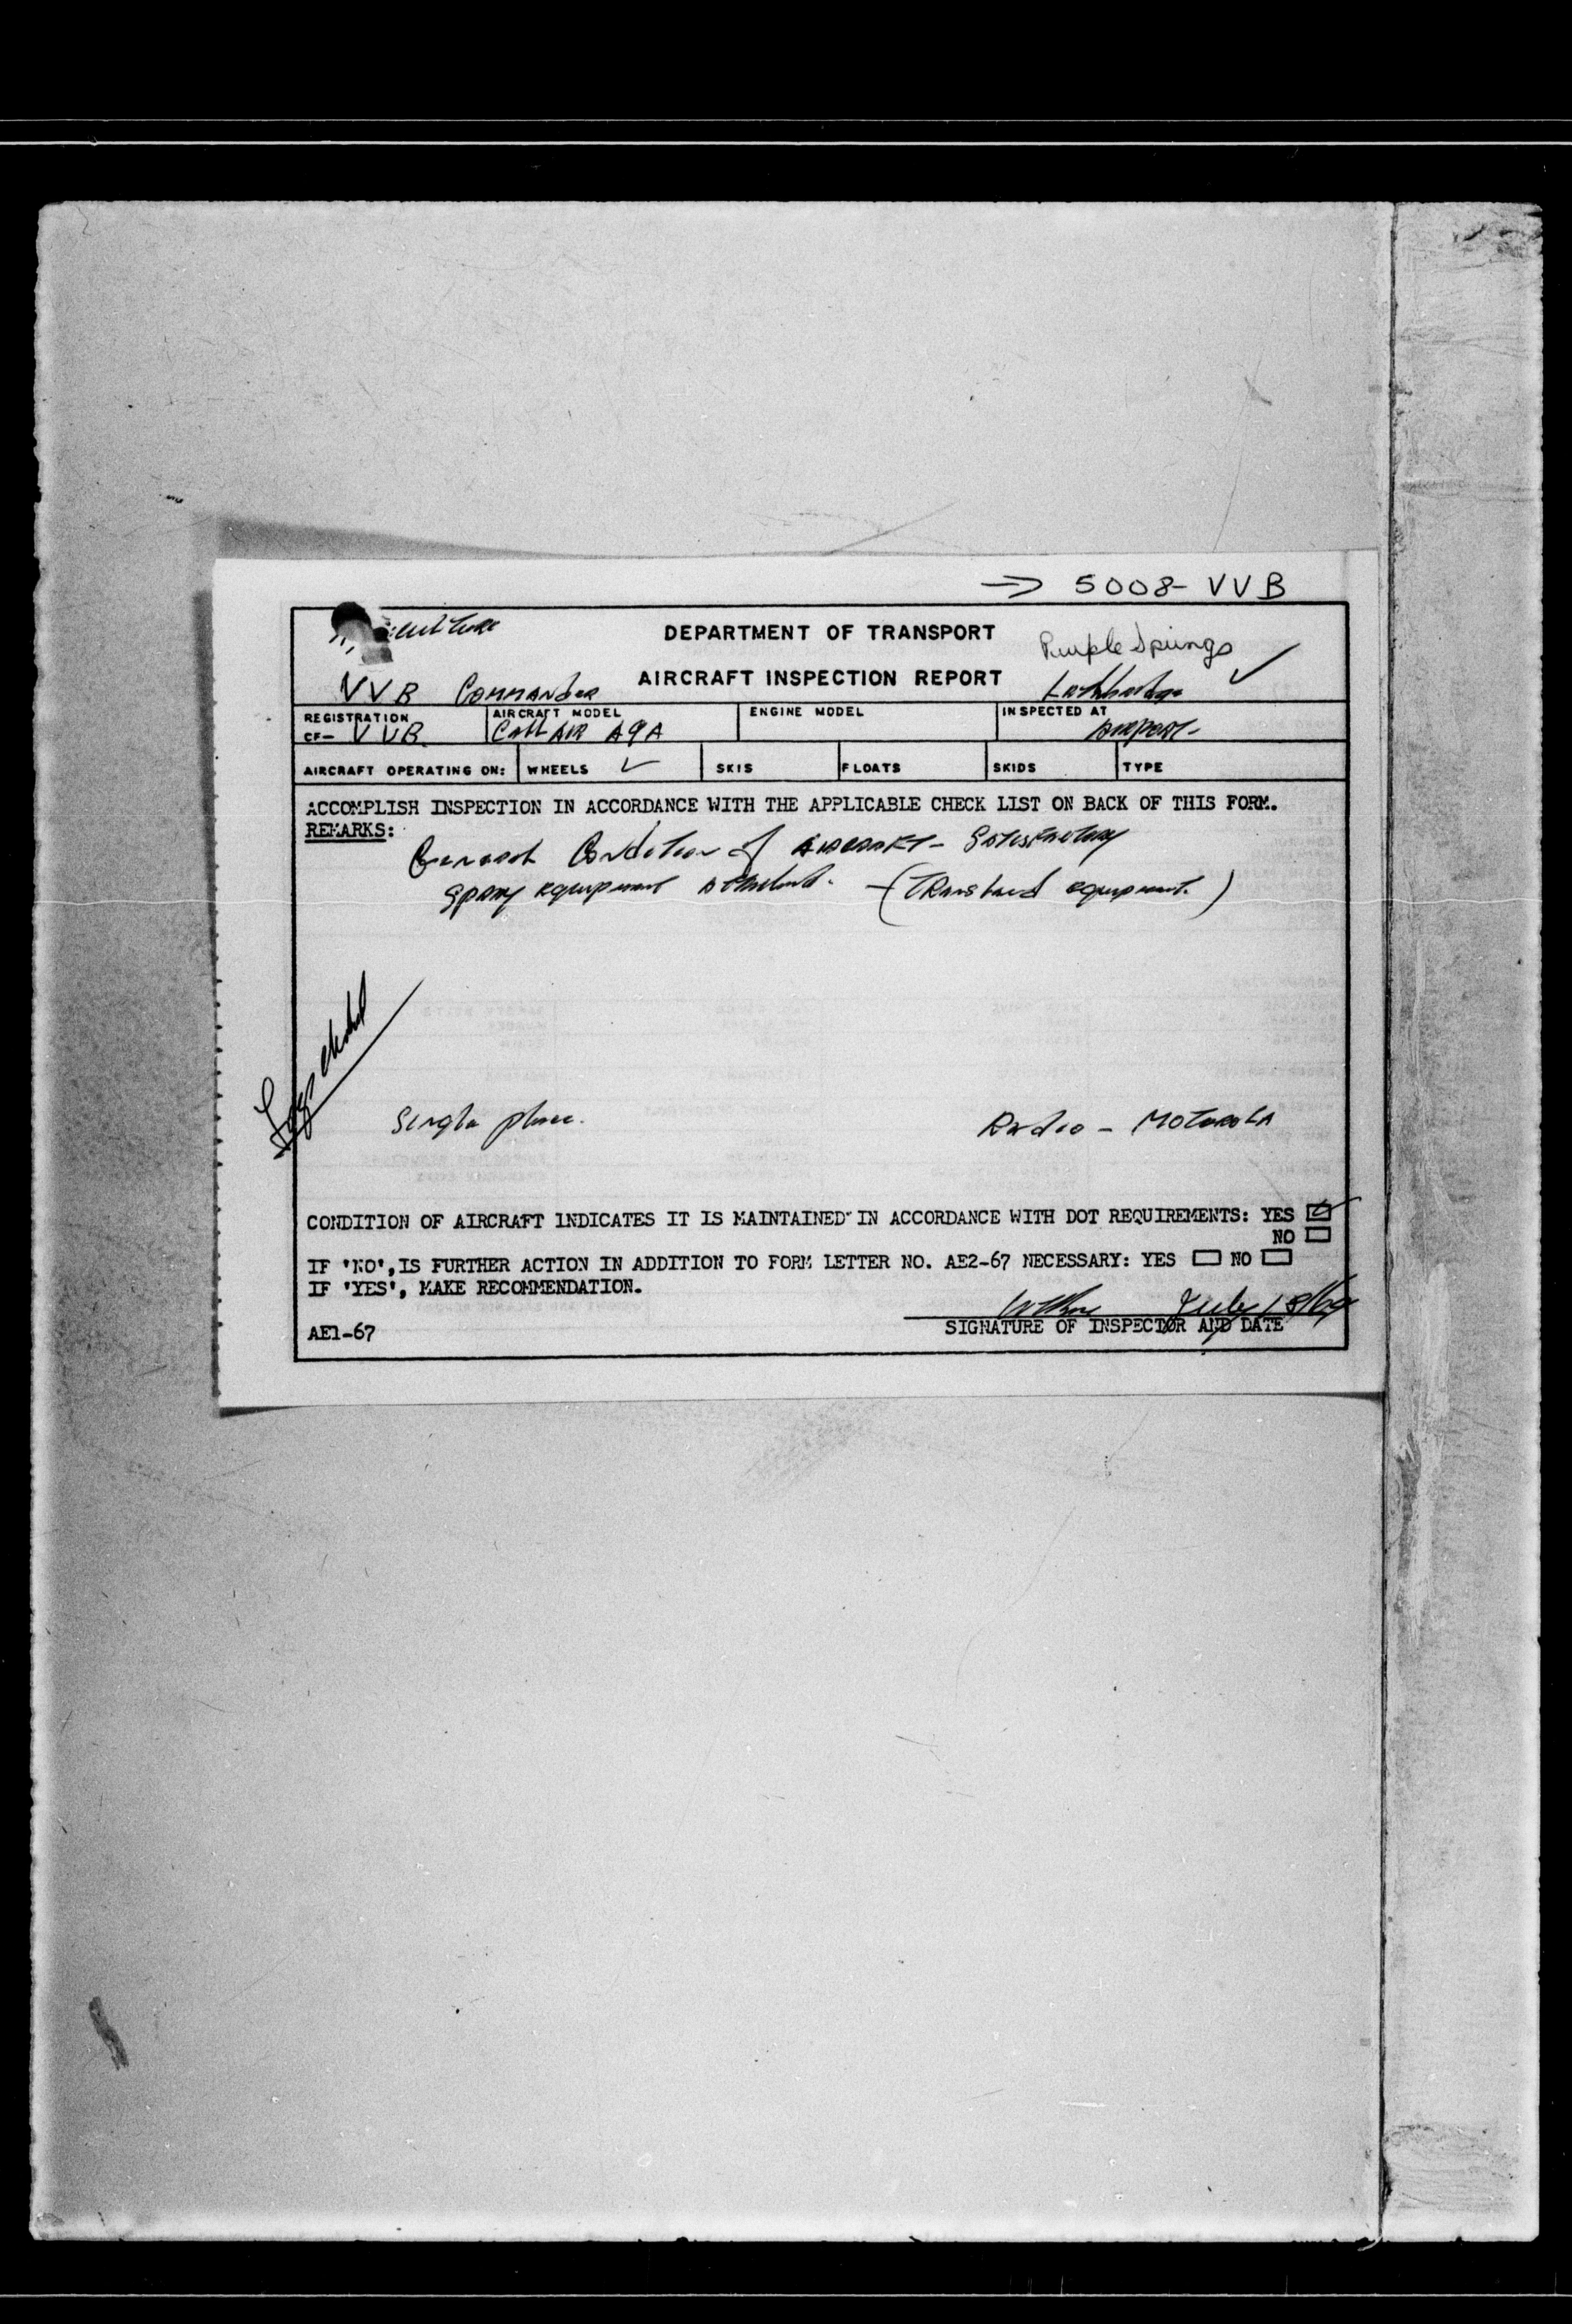 → 5008- VVB
DEPARTMENT OF TRANSPORT
Purple Springs
VVB Commander
AIRCRAFT INSPECTION REPORT
Lethbridge
REGISTRATION
CF- VVB
AIRCRAFT MODEL
Call AIR A9A
ENGINE MODEL
INSPECTED AT
Airport-
AIRCRAFT OPERATING ON: WHEELS ✓ SKIS FLOATS SKIDS TYPE
ACCOMPLISH INSPECTION IN ACCORDANCE WITH THE APPLICABLE CHECK LIST ON BACK OF THIS FORM.
REMARKS:
General Condition of Aircraft - Satisfactory
Spray equipment attached. - (Transland equipment.)
Log checked
Single place.
Radio - MOTOROLA
CONDITION OF AIRCRAFT INDICATES IT IS MAINTAINED IN ACCORDANCE WITH DOT REQUIREMENTS: YES ☑
NO ☐
IF 'NO', IS FURTHER ACTION IN ADDITION TO FORM LETTER NO. AE2-67 NECESSARY: YES ☐ NO ☐
IF 'YES', MAKE RECOMMENDATION.
July 18/69
SIGNATURE OF INSPECTOR AND DATE
AE1-67